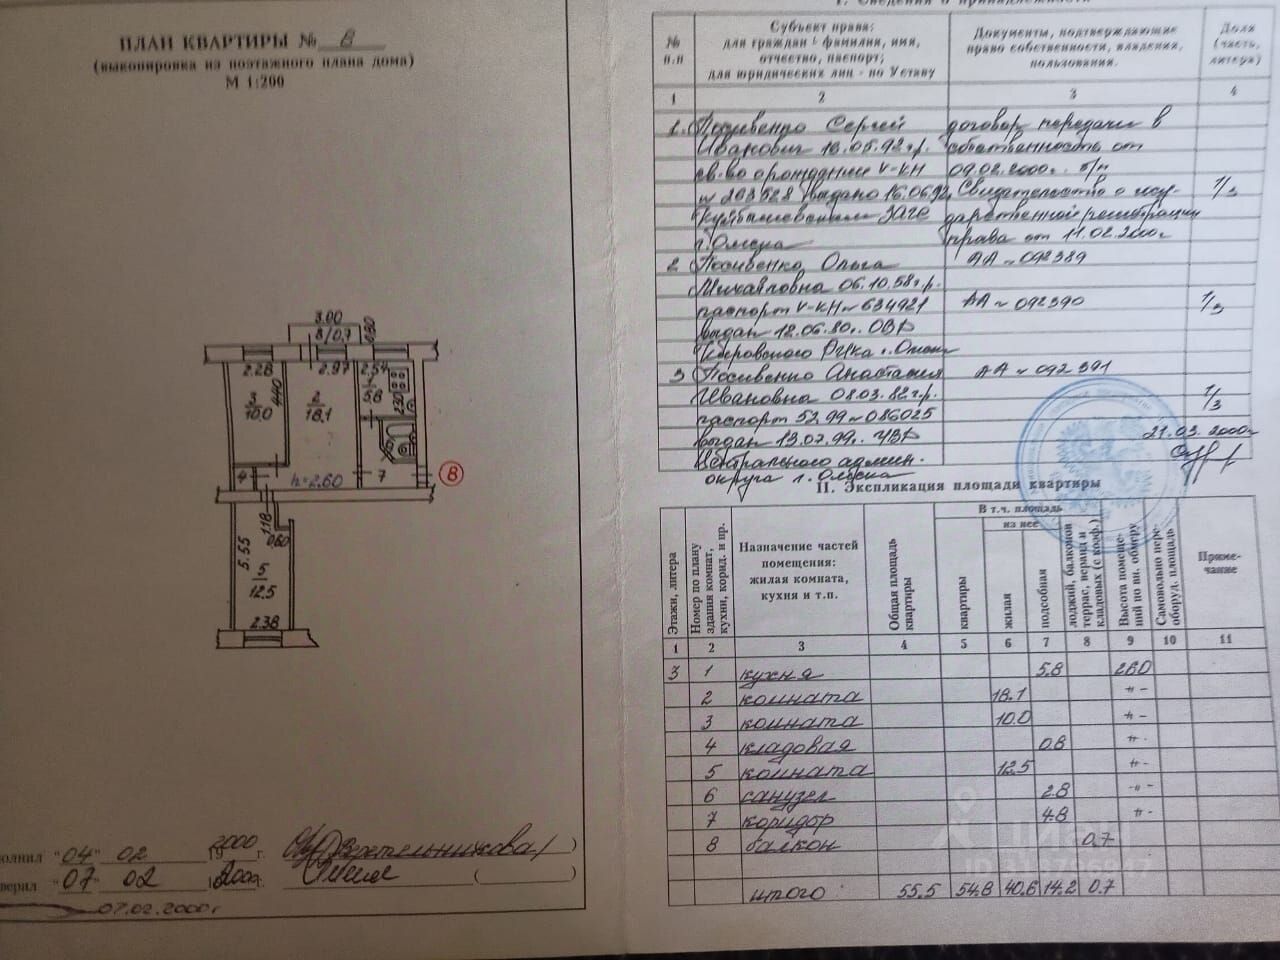 ПЛАН КВАРТИРЫ № 8
(выкопировка из поэтажного плана дома)
М 1:200
3.00
8/0,7
0.30
2.28
2.97
2.54
4.40
3
10.0
2
18.1
1
5.8
2.30
4
h=2.60
7
8
1.18
0.60
5.55
5
12.5
2.38
"04" 02 2000 г.
"07" 02 2000г. ( )
07.02.2000г
I. Сведения о принадлежности
№ п.п
Субъект права:
для граждан - фамилия, имя,
отчество, паспорт;
для юридических лиц - по Уставу
Документы, подтверждающие
право собственности, владения,
пользования.
Доля
(часть,
литера)
1 2 3 4
1. Посивенко Сергей договор передачи в
Иванович 18.05.92г.р. собственность от
св-во о рождении V-КН 09.02.2000г. б/н
№ 203528 выдано 16.06.92 Свидетельство о госу- 1/3
Куйбышевским ЗАГС дарственной регистрации
г. Омска права от 11.02.2000г
2 Посивенко Ольга АА № 092389
Михайловна 06.10.58г.р.
паспорт V-КН № 634921 АА № 092390 1/3
выдан 12.06.80г. ОВД
Кировского РИКа г. Омска
3 Посивенко Анастасия АА № 092391
Ивановна 08.03.82г.р. 1/3
паспорт 52.99 № 086025
выдан 13.07.99г. УВД 21.03.2000г
Центрального админ.
округа г. Омска
II. Экспликация площади квартиры
Этажи, литера
Номер по плану здания комнат, кухни, корид. и пр.
Назначение частей
помещения:
жилая комната,
кухня и т.п.
Общая площадь квартиры
В т.ч. площадь
квартиры
из нее
жилая
подсобная
лоджий, балконов террас, веранд и кладовых (с коэф.)
Высота помещений по вн. обмеру
Самовольно переоборуд. площадь
Приме-
чание
1 2 3 4 5 6 7 8 9 10 11
3 1 кухня 5.8 260
2 комната 18.1 -"-
3 комната 10.0 -"-
4 кладовая 0.8 -"-
5 комната 12.5 -"-
6 санузел 2.8 -"-
7 коридор 4.8 -"-
8 балкон 0.7
итого 55.5 54.8 40.6 14.2 0.7